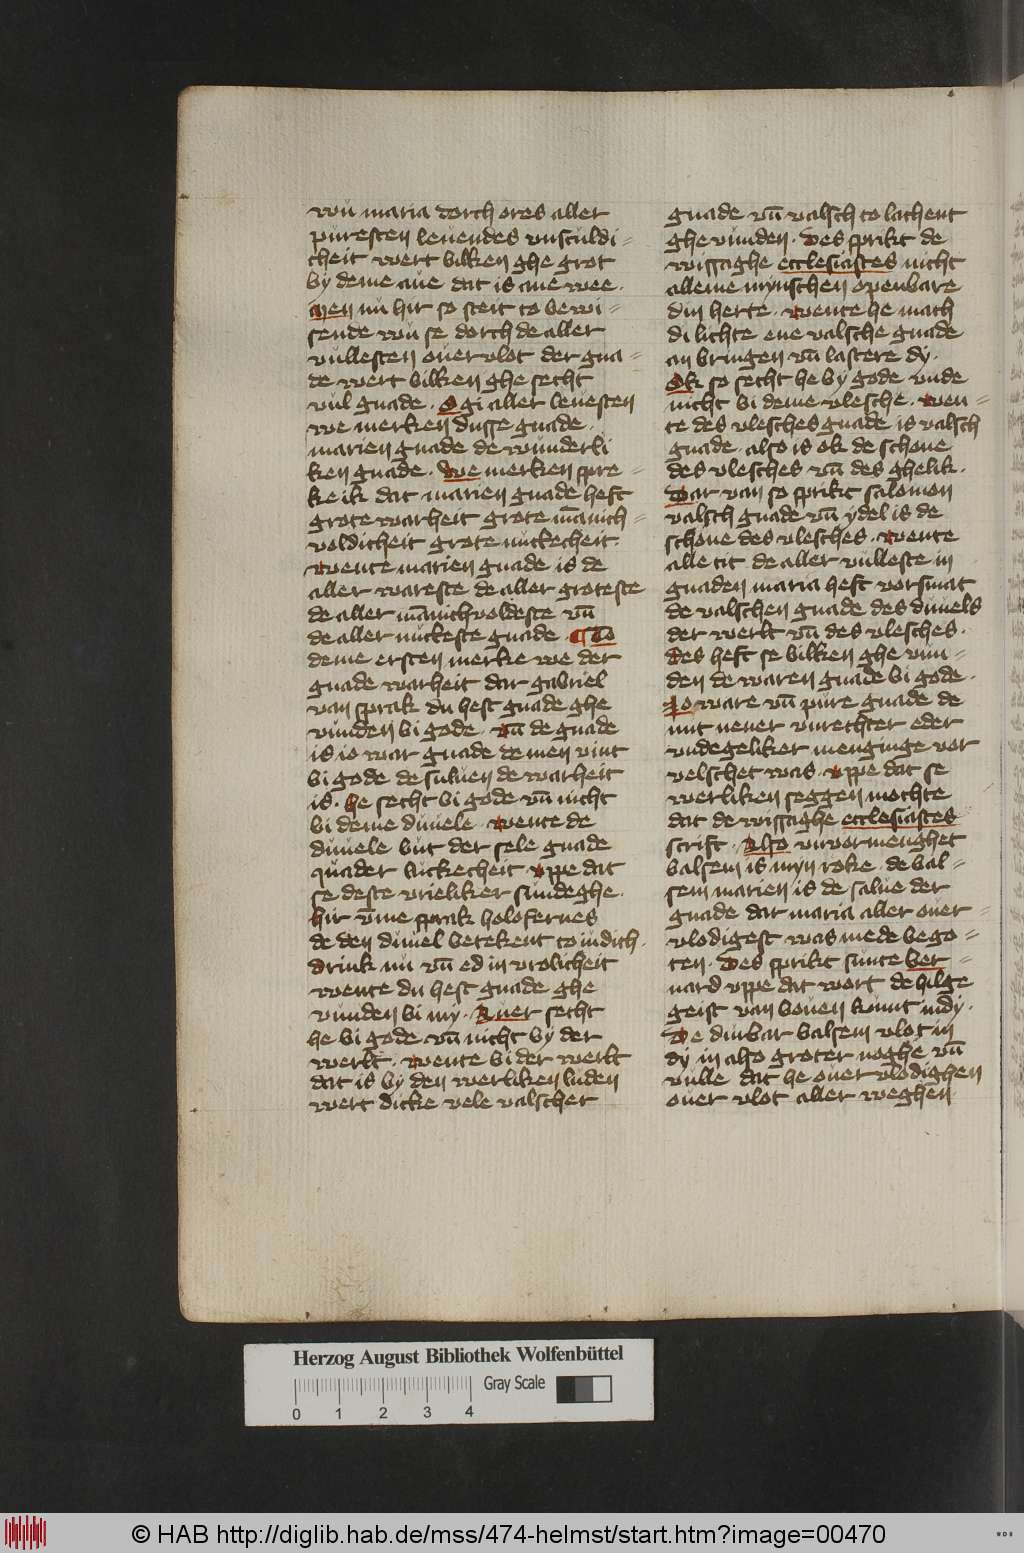 wu maria dorch ores aller
puresten leuendes vnsculdi-
cheit wert billken ghe grot
by deme aue dat is ane wee.
Men nu hir so steit to bewi-
sende wu se dorch de aller
vullesten ouervlot der gna-
de wert billken ghe secht
vul gnade. O gi aller leuesten
we merken dusse gnade.
marien gnade de wunderli
ken gnade. We merken spre-
ke ik dat marien gnade heft
grote warheit grote ma̅nich-
voldicheit grote nuckecheit.
Wente marien gnade is de
aller wareste de aller groteste
de aller ma̅nichvoldeste vn̅
de aller nuckeste gnade. To
deme ersten merke we der
gnade warheit dar gabriel
van sprak du hest gnade ghe
vunden bi gode. vn̅ de gnade
is io war gnade de men vint
bi gode de suluen de warheit
is. he secht bi gode vn̅ nicht
bi deme duuele. Wente de
duuele but der sele gnade
quader luckecheit vppe dat
se deste vrieliker sundeghe.
hir v̅me sprak holofernes
de den duuel betekent to iudich.
drink nu vn̅ ed in vrolicheit
wente du hest gnade ghe
vunden bi my. Auer secht
he bi gode vn̅ nicht by der
werlt. Wente bi der werlt
dat is by den werliken luden
wert dicke vele valscher
gnade vn̅ valsch to lachent
ghe vunden. Des sprikt de
wissaghe ecclesiastes nicht
alleme mynschen openbare
din herte. Wente he mach
di lichte ene valsche gnade
an bringen vn̅ lastere dy.
Ok so secht he by gode vnde
nicht bi deme vlesche. Wen-
te des vlesches gnade is valsch
gnade. also is ok de schone
des vlesches vn̅ des ghelik.
Dar van so sprikt salomon
valsch gnade vn̅ ydel is de
schone des vlesches. Wente
alle tit de aller vulleste in
gnaden maria heft vorsmat
de valschen gnade des duuels
der werlt vn̅ des vlesches.
Des heft se billken ghe vun-
den de waren gnade bi gode.
Io ware vn̅ pure gnade de
mit nener vnrechter eder
vndegeliker menginge vor
velschet was. vppe dat se
werliken seggen mochte
dat de wissaghe ecclesiastes
scrift. Also vnvormenghet
balsem is myn roke. de bal-
sem marien is de salue der
gnade dar maria aller ouer-
vlodigest was mede bego-
ten. Des sprikt sunte ber-
nard vppe dat wort de hilge
geist van bouen kumt in dy.
De durbar balsem vlot in
dy in also groter noghe vn̅
vulle dat he ouer vlodighen
ouer vlot aller weghen
Herzog August Bibliothek Wolfenbüttel
Gray Scale
0 1 2 3 4
© HAB http://diglib.hab.de/mss/474-helmst/start.htm?image=00470
WDB